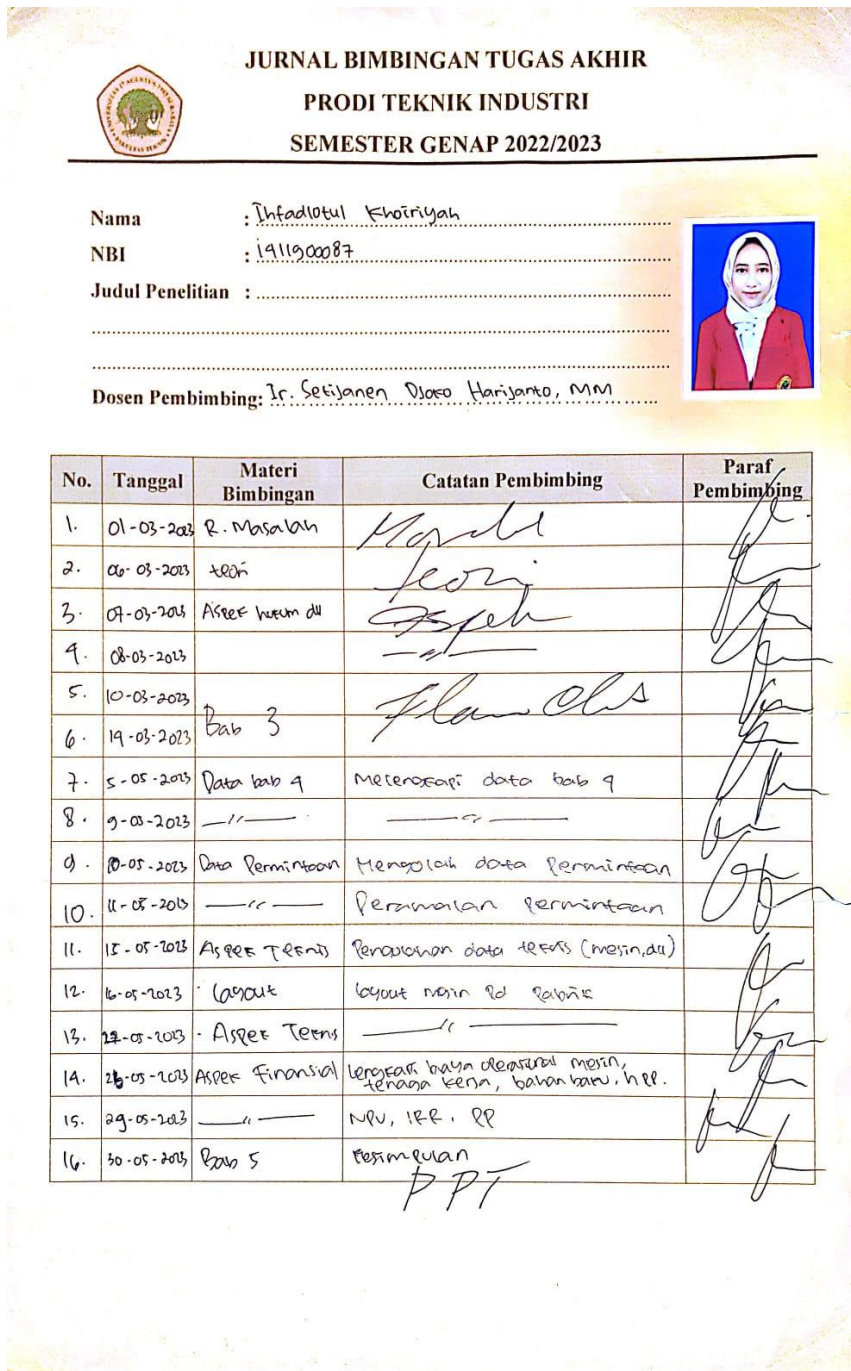 JURNAL BIMBINGAN TUGAS AKHIR
PRODI TEKNIK INDUSTRI
SEMESTER GENAP 2022/2023
Nama : Ihfadlotul Khoiriyah
NBI : 1411900087
Judul Penelitian :
Dosen Pembimbing: Ir. Setijanen Djoko Harijanto, MM
No. Tanggal Materi Bimbingan Catatan Pembimbing Paraf Pembimbing
1. 01-03-2023 R. Masalah
2. 06-03-2023 teori Teori
3. 07-03-2023 Aspek hukum dll Aspek
4. 08-03-2023 —//—
5. 10-03-2023
6. 14-03-2023 Bab 3
7. 5-05-2023 Data bab 4 Melengkapi data bab 4
8. 9-05-2023 —//— —//—
9. 10-05-2023 Data Permintaan Mengolah data Permintaan
10. 11-05-2023 —//— Peramalan permintaan
11. 15-05-2023 Aspek Teknis Pengolahan data teknis (mesin, dll)
12. 16-05-2023 Layout layout mesin pd pabrik
13. 22-05-2023 - Aspek Teknis —//—
14. 26-05-2023 Aspek Finansial Lengkapi biaya operasional mesin,
tenaga kerja, bahan baku, hpp.
15. 29-05-2023 —//— NPV, IRR, PP
16. 30-05-2023 Bab 5 Kesimpulan
PPT